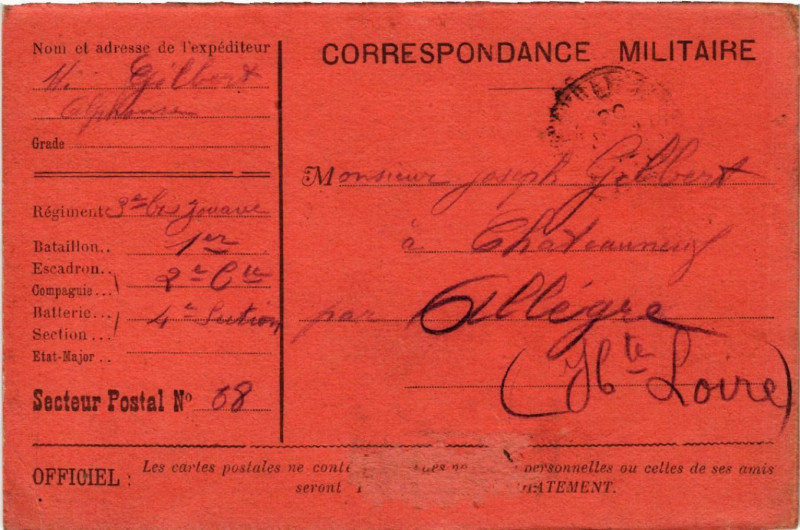 Nom et adresse de l'expéditeur
Gilbert
Alphonse
Grade
Régiment 3e bis zouave
Bataillon.. 1er
Escadron..
Compagnie... 2e Cie
Batterie...
Section... 4e Section
Etat-Major..
Secteur Postal No 68
CORRESPONDANCE MILITAIRE
Monsieur Joseph Gilbert
à Chateauneuf
par Allègre
(Hte Loire)
OFFICIEL : Les cartes postales ne personnelles ou celles de ses amis
seront